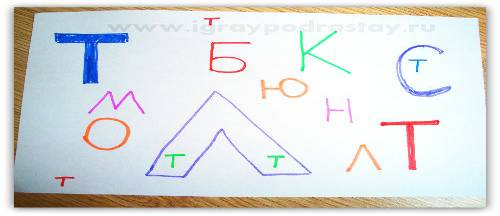 www.igraypodrastay.ru
Т
Т Б К С Т
М Ю Н
О Л Т Т Л Т
Т